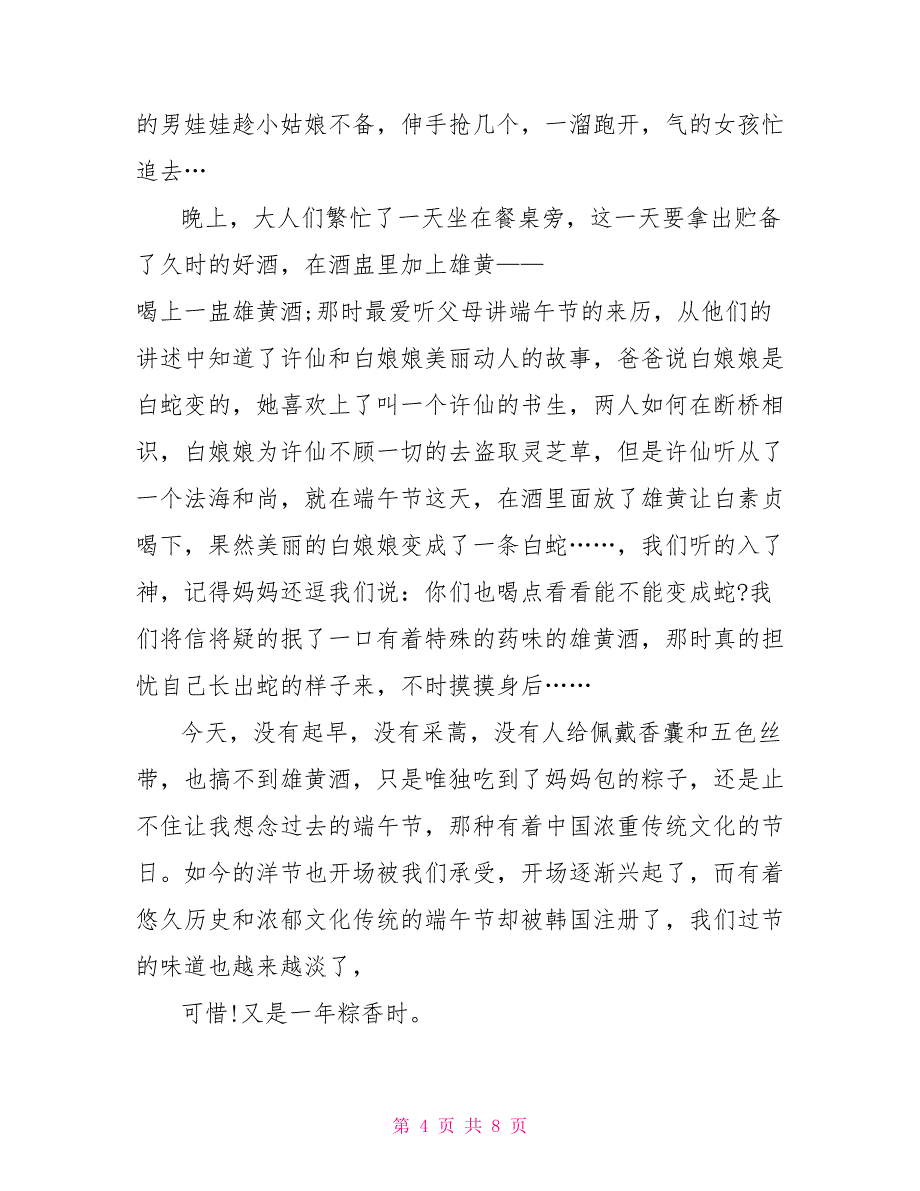 的男娃娃趁小姑娘不备，伸手抢几个，一溜跑开，气的女孩忙
追去…
晚上，大人们繁忙了一天坐在餐桌旁，这一天要拿出贮备
了久时的好酒，在酒盅里加上雄黄——
喝上一盅雄黄酒;那时最爱听父母讲端午节的来历，从他们的
讲述中知道了许仙和白娘娘美丽动人的故事，爸爸说白娘娘是
白蛇变的，她喜欢上了叫一个许仙的书生，两人如何在断桥相
识，白娘娘为许仙不顾一切的去盗取灵芝草，但是许仙听从了
一个法海和尚，就在端午节这天，在酒里面放了雄黄让白素贞
喝下，果然美丽的白娘娘变成了一条白蛇……，我们听的入了
神，记得妈妈还逗我们说：你们也喝点看看能不能变成蛇?我
们将信将疑的抿了一口有着特殊的药味的雄黄酒，那时真的担
忧自己长出蛇的样子来，不时摸摸身后……
今天，没有起早，没有采蒿，没有人给佩戴香囊和五色丝
带，也搞不到雄黄酒，只是唯独吃到了妈妈包的粽子，还是止
不住让我想念过去的端午节，那种有着中国浓重传统文化的节
日。如今的洋节也开场被我们承受，开场逐渐兴起了，而有着
悠久历史和浓郁文化传统的端午节却被韩国注册了，我们过节
的味道也越来越淡了，
可惜!又是一年粽香时。
第 4 页 共 8 页